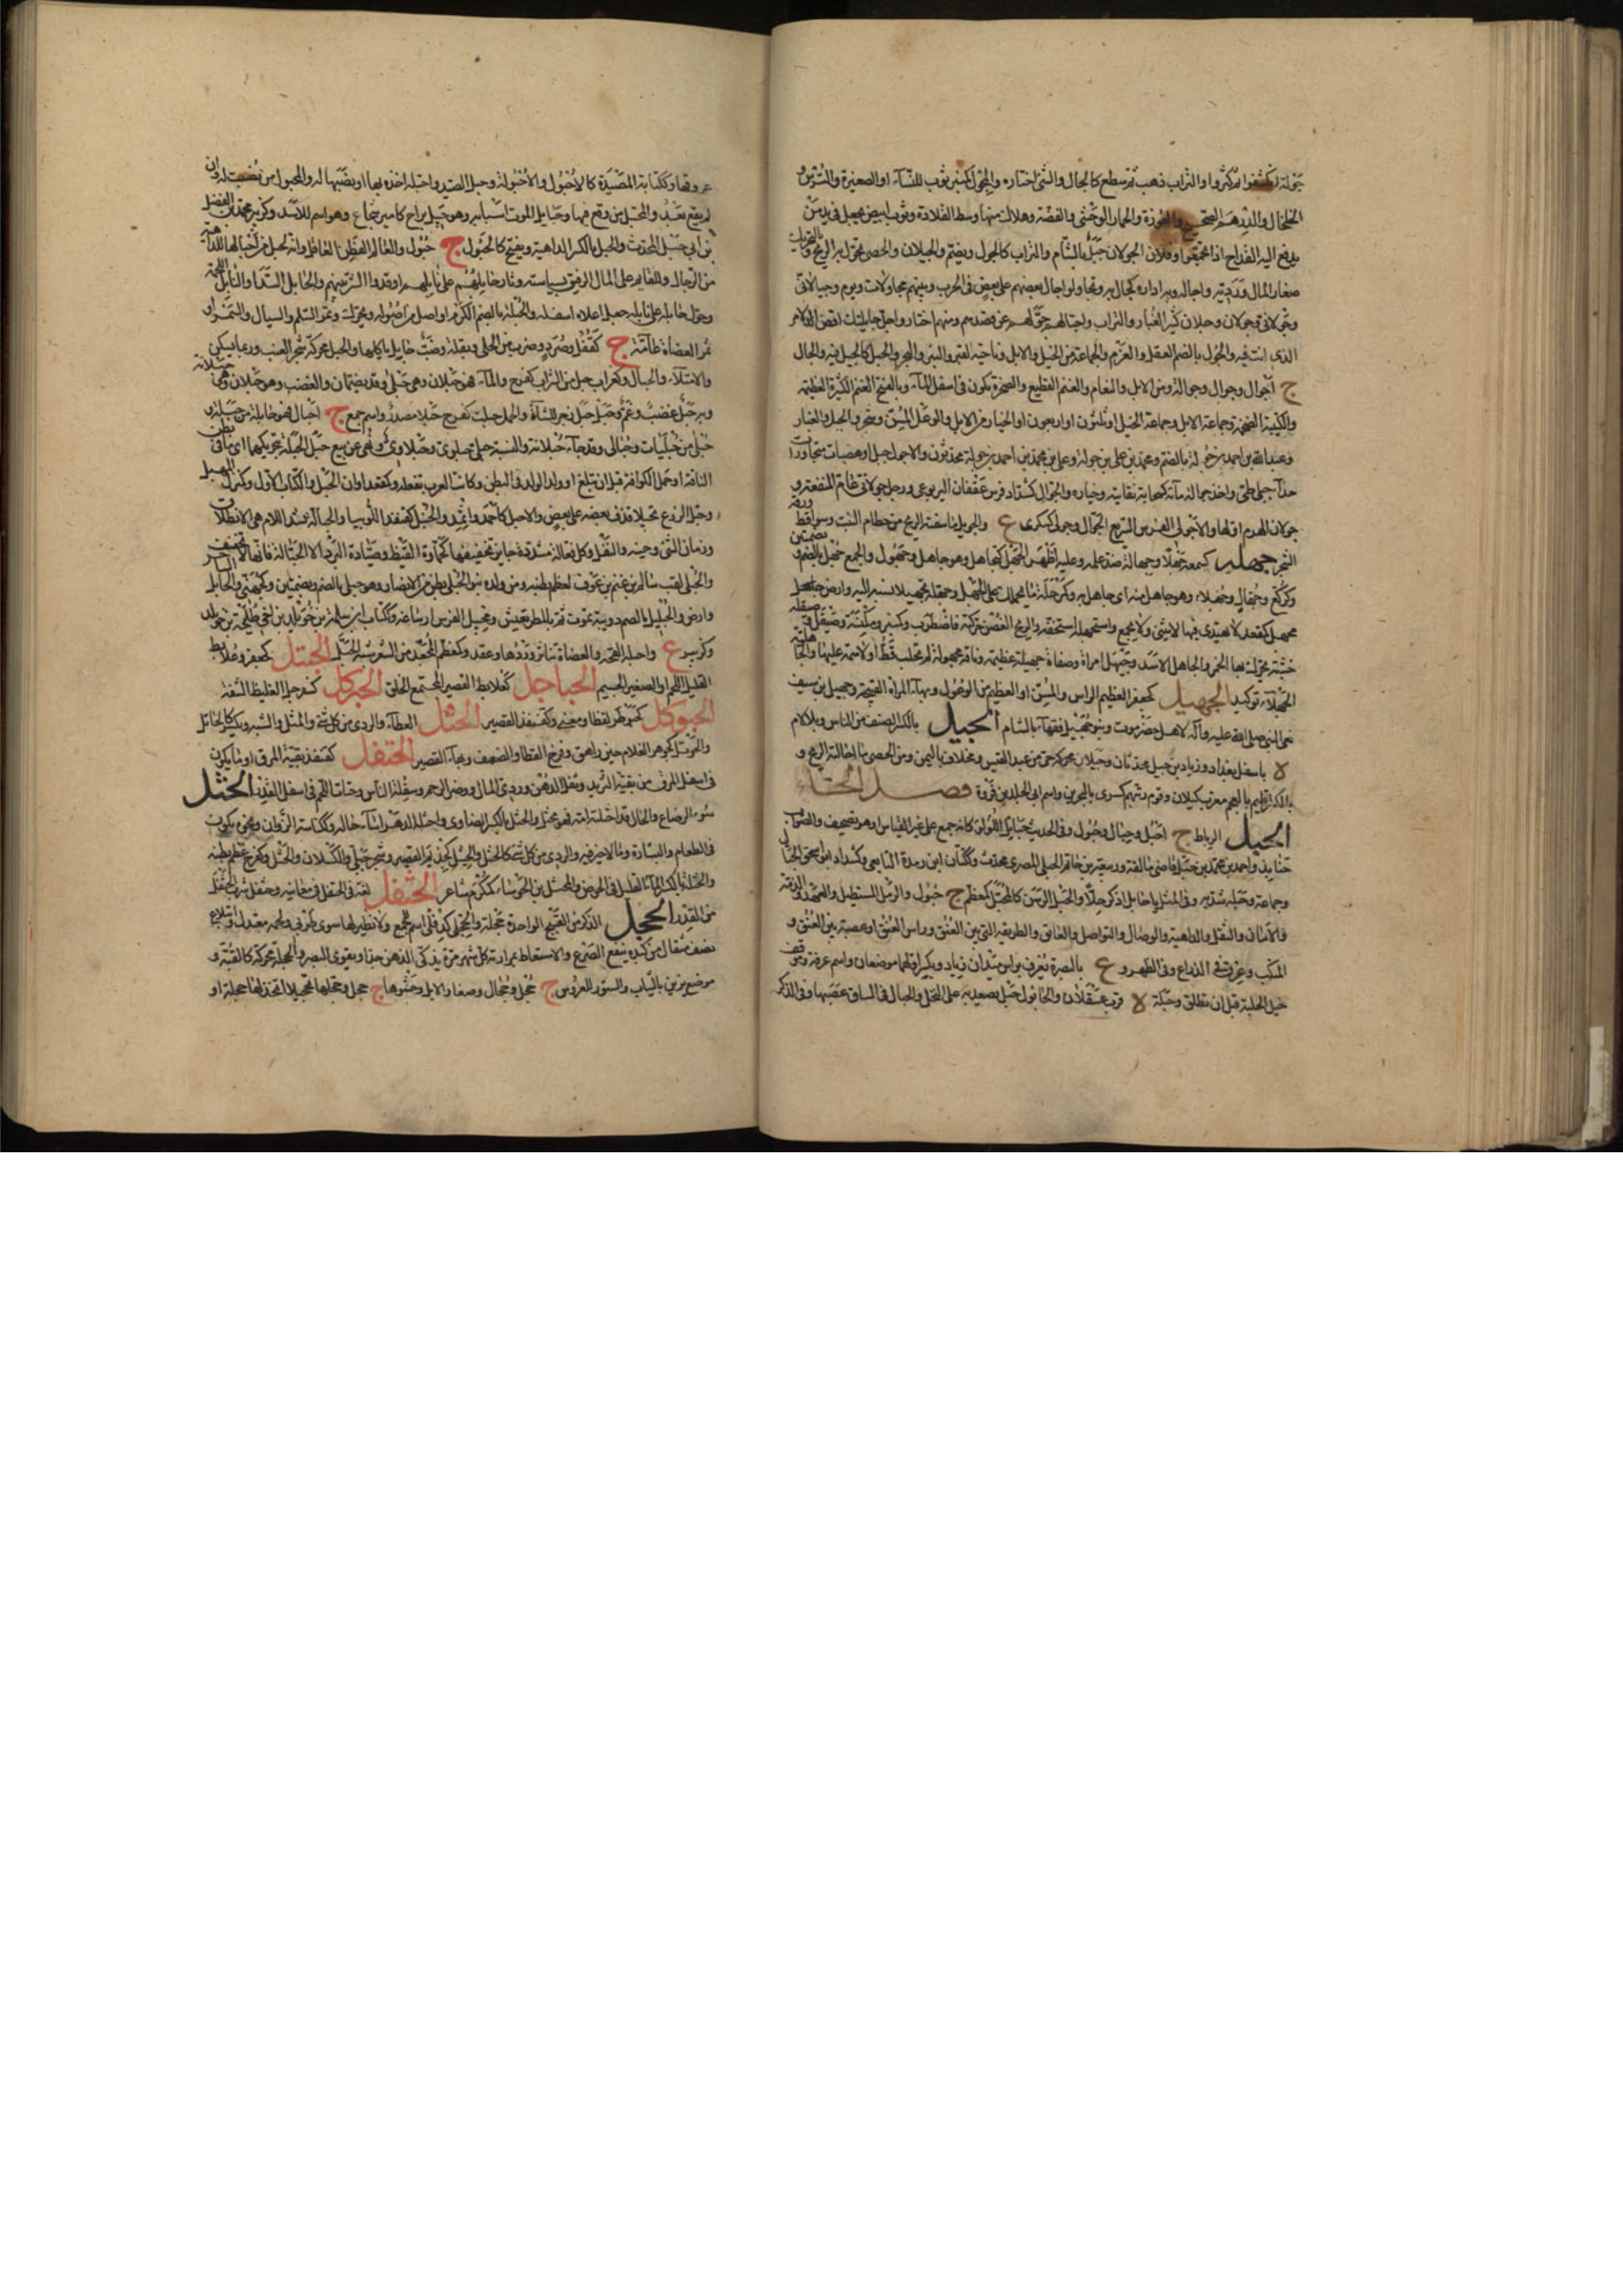 جولة انكشفوا ثم كروا والتراب ذهب ثم سطع كانجال والشئ اختاره والمجول كمنبر ثوب للنساء او الصغيرة والترس و
الخلخال والدرهم الصحيح والعوذة والحمار الوحشى والفضة وهلال منها وسط القلادة وثوب ابيض يجعل فى يد من
يدفع اليه القداح اذا تجمعوا وفلان الجولان جبل بالشام والتراب كالجول ويضم والجيلان والحصى تجول به الريح وبالتحريك
صغار المال ورديه واجاله وبه اداره كجال به وتجاولوا جال بعضهم على بعض فى الحرب وبينهم مجاولات ويوم وجيلانى
وجولانى وجولان وجيلان كثير الغبار والتراب واجتالهم حولهم عن قصدهم ومنهم اختار واجل جايلتك اقض الامر
الذى انت فيه والجول بالضم العقل والعزم والجماعة من الخيل والابل وناحية القبر والبئر والبحر والجبل كالجيل فيه والجال
ج اجوال وجوال وجوالة ومن الابل والنعام والغنم القطيع والصخرة تكون فى اسفل الماء وبالفتح الغنم الكثيرة العظيمة
والكتيبة الضخمة وجماعة الابل وجماعة الخيل او ثلثون او اربعون او الخيار من الابل والوعل المسن وشجر والجبل والغبار
وعبد الله بن احمد بن جولة بالضم ومحمد بن على بن جولة وعلى بن محمد بن احمد بن جولة محدثون والاجول جبل او هضبات متجاورات
حذاء جبلى طئ واخذ جوالة ماله كسحابة نقايته وخياره والجوال كشداد فرس عقفان اليربوعى ورجل جولانى عام المنفعة و
جولان الهموم اولها والاجولى الفرس السريع الجوال وجولى كسكرى ع والجويل ما سفته الريح من حطام النبت وسواقط ورق
الشجر جهله كسمعه جهلا وجهالة ضد علمه وعليه اظهر الجهل كتجاهل وهو جاهل وجهول والجمع جهل بالضم وبضمتين
وكركع وجهال وجهلاء وهو جاهل منه اى جاهل به وكمرحلة ما يحملك على الجهل وجهله تجهيلا نسبه اليه وارض
مجهل كمقعد لا يهتدى فيها لا يثنى ولا يجمع واستجهله استخفه والريح الغصن حركته فاضطرب وكمنبر ومكنسة وصيقل وصيقلة
خشبة يحرك بها الخمر والجاهل الاسد وجيهل امراة وصفاة جيهلة عظيمة وناقة مجهولة لم تحلب قط او لا سمة عليها والجاهلية
الجهلاء توكيد الجهبل كجعفر العظيم الراس والمسن او العظيم من الوعول وبهاء المراة القبيحة وجهبل بن سيف
نعى النبى صلى الله عليه وآله لاهل حضرموت وبنو جهبل فقهاء بالشام الجيل بالكسر الصنف من الناس وبلا لام
ة باسفل بغداد وزياد بن جبل محدثان وجيلان محركة حى من عبد القيس ومخلاف باليمن ومن الحصى ما اجالته الريح و
بالكسر اقليم بالعجم معرب كيلان وقوم رتبهم كسرى بالبحرين واسم ابى الجلد بن فروة فصل الحاء
الحبل الرباط ج احبل وحبال وحبول وفى الحديث حبايل اللؤلؤ كانه جمع على غير القياس او هو تصحيف والصواب
جنابذ واحمد بن محمد بن حبل قاضى مالقة وربيعة بن حاتم الحبلى المصرى محدث وككتان ابن رفدة التابعى وكشداد
وجماعة وحبله شده به وفى المثل يا حابل اذكر حلا والحبل الرسن كالمحبل كمعظم ج حبول والرمل المستطيل والعهد والذمة
والامان والثقل والداهية والوصال والتواصل والعاتق والطريقة التى بين العنق وراس الكتف او عصبة بين العنق و
المنكب وعرق فى الذراع وفى الظهر و ع بالبصرة يعرف براس ميدان زياد ويكسر اولهما موضعان واسم عرفة وموقف
خيل الحلبة قبل ان تطلق وحبلة ة قرب عسقلان والحابول حبل يصعد به على النخل والحبال فى الساق عصبها وفى الذكر
عروقها وككتابة المصيدة كالاحبول والاحبولة وحبل الصيد واحتبله اخذه بها او نصبها له والمحبول من نصبت له وان
لم يقع بعد والمحتبل من وقع فيها وحبايل الموت اسبابه وهو حبيل براح كامير شجاع وهو اسم للاسد وكزبير محمد بن الفضل
بن ابى حبيل المحدث والحبل بالكسر الداهية ويفتح كالحبول ج حبول والعالم الفطن العاقل وانه لحبل من احبالها للداهية
من الرجال وللقائم على المال الرفيق بسياسته وثار حابلهم على نابلهم اوقدوا الشر بينهم والحابل السدا والنابل اللحمة
وحول حابله على نابله جعل اعلاه اسفله والحبلة بالضم الكرم او اصل من اصوله ويحرك وثمر السلم والسيال والسمر او
ثمر العضاه عامة ج كقفل وصرد وضرب من الحلى وبقلة وضب حابل ياكلها والحبل محركة شجر العنب وربما يسكن
والامتلاء والحبال وكغراب حبل من التراب كفرح والماء فهو حبلان وهى حبلى وقد يضمان والغضب وهو حبلان وهى حبلانة
وبه حبل غضب وغم وحبل حبل زجر للشاة والحمل حبلت كفرح حبلا مصدر واسم جمع ج احبال فهى حابلة من حبلة و
حبلى من حبليات وحبالى وقد جاء حبلانة والنسبة حبلى وحبلوى وحبلاوى ونهى عن بيع حبل الحبلة بتحريكهما اى ما فى بطن
الناقة او حمل الكرمة قبل ان تبلغ او ولد الولد فى البطن وكانت العرب تفعله وكمقعد اوان الحبل والكتاب الاول وكمنزل المهبل
وحبل الزرع تحبيلا قذف بعضه على بعض والاحبل كاحمد واثمد والحنبل كقنفذ اللوبيا والحبالة بتشديد اللام هى الانطلاق
وزمان الشئ وحينه والثقل وكل فعالة مشددة جايز تخفيفها كحمارة القيظ وصبارة البرد الا الحبالة فانها لا تخفف
والحبلى لقب سالم بن غنم بن عوف لعظم بطنه ومن ولده بنو الحبلى بطن من الانصار وهو حبلى بالضم وبضمتين وكجهنى والحابل الساحر
وارض والحبليل بالضم دويبة تموت ثم بالمطر تعيش ومحتبل الفرس ارساغه وككتاب ابن سلمة بن خويلد بن اخى طليحة بن خويلد
وكزبير ع واحبله القحه والعضاه تناثر وردها وعقد وكمعظم المجعد من الشعر شبه الحبل الحبتل كجعفر وعلابط
القليل اللحم او الصغير الجسيم الحباجل كعلابط القصير المجتمع الخلق الحبركل كسفرجل الغليظ الشفة
الحبوكل كحبوكر لفظا ومعنى وكقنفذ القصير الحتل العطاء والردى من كل شئ والمثل والشبه ويكسر كالحاتل
والحوتل كجوهر الغلام حين راهق وفرخ القطا والضعيف وبهاء القصير الحتفل كقنفذ بقية المرق او ما يكون
فى اسفل المرق من بقية الثريد وثفل الدهن وردى المال ووضر الرحم وسفلة الناس وحتات اللحم فى اسفل القدر الحثل
سوء الرضاع والحال وقد احثلته امه فهو محثل والحثل بالكسر الضاوى واحثله الدهر اساء حاله وككناسة الزوان ونحوه يكون
فى الطعام والقشارة وما لا خير فيه والردى من كل شئ كالحثل والحثيل كحذيم القصير وشجر جبلى والكسلان والحثل وكفرح عظم بطنه
والحثلة بالكسر الماء القليل فى الحوض والمحثل بن الحوساء كمكرم شاعر الحثفل لغة فى الحتفل فى معانيه وحثفل شرب الحثفل
من القدر الحجل الذكر من القبج الواحدة حجلة والحجلى كدفلى اسم للجمع ولا نظير لها سوى ظربى ولحمه معتدل وابتلاع
نصف مثقال من كبده ينفع الصرع والاستعاط بمرارته كل شهر مرة يذكى الذهن جدا ويقوى البصر والحجلة محركة كالقبة و
موضع يزين بالثياب والستور للعروس ج حجل وحجال وصغار الابل وحشوها ج حجل وحجلها تحجيلا اتخذ لها حجلة او